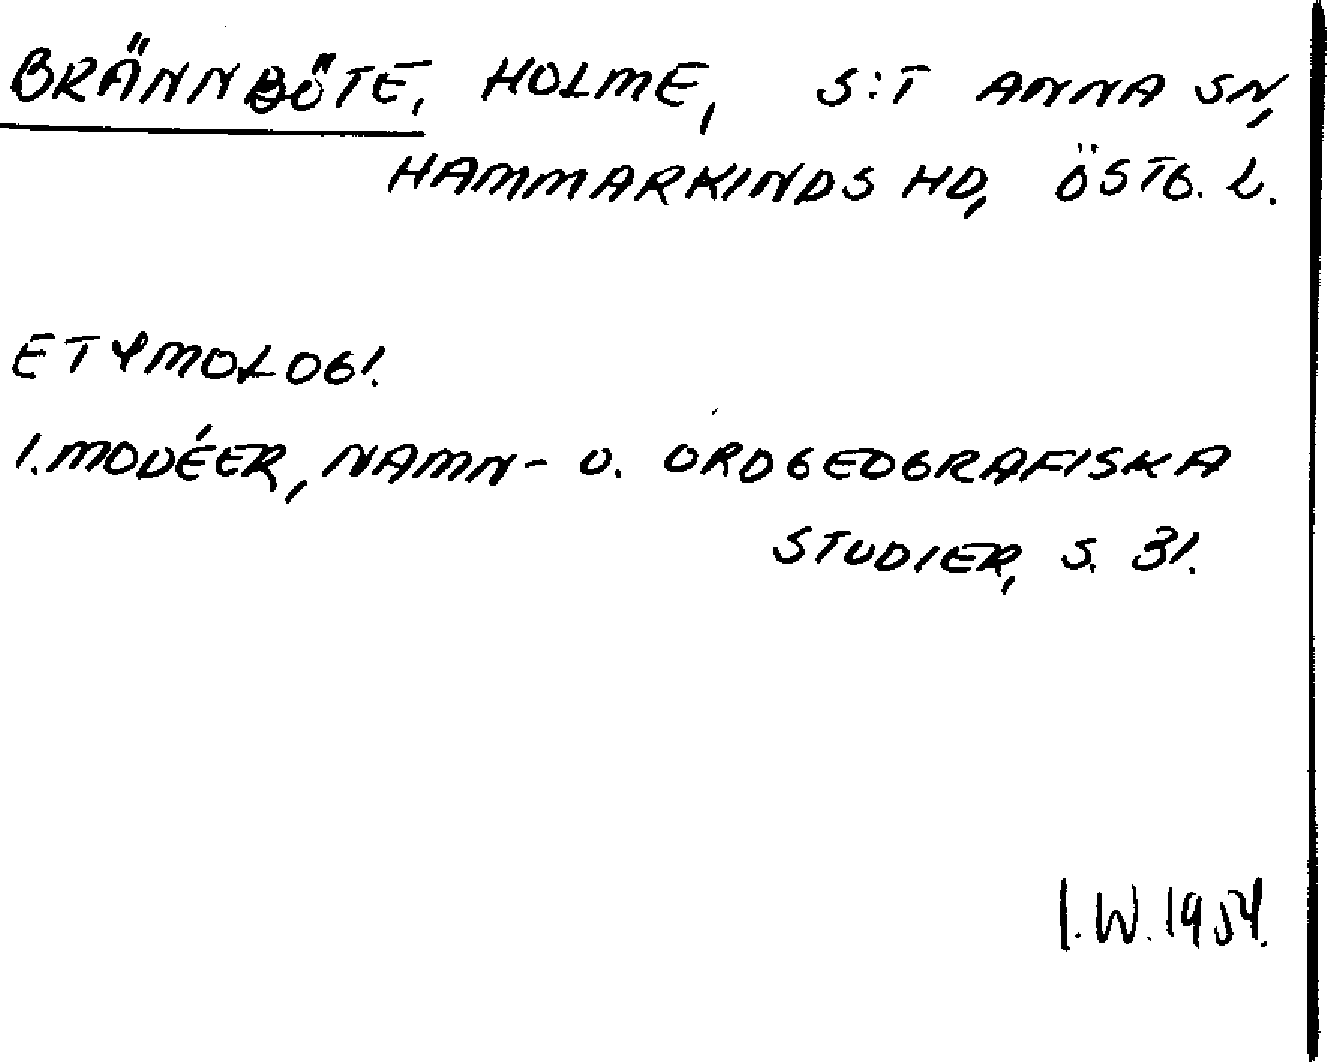 BRÄNNBÖTE, HOLME, S:T ANNA SN,
HAMMARKINDS HD, ÖSTG. L.
ETYMOLOGI.
I. MODÉER, NAMN- O. ORDGEOGRAFISKA
STUDIER, S. 31.
I.W. 1954.